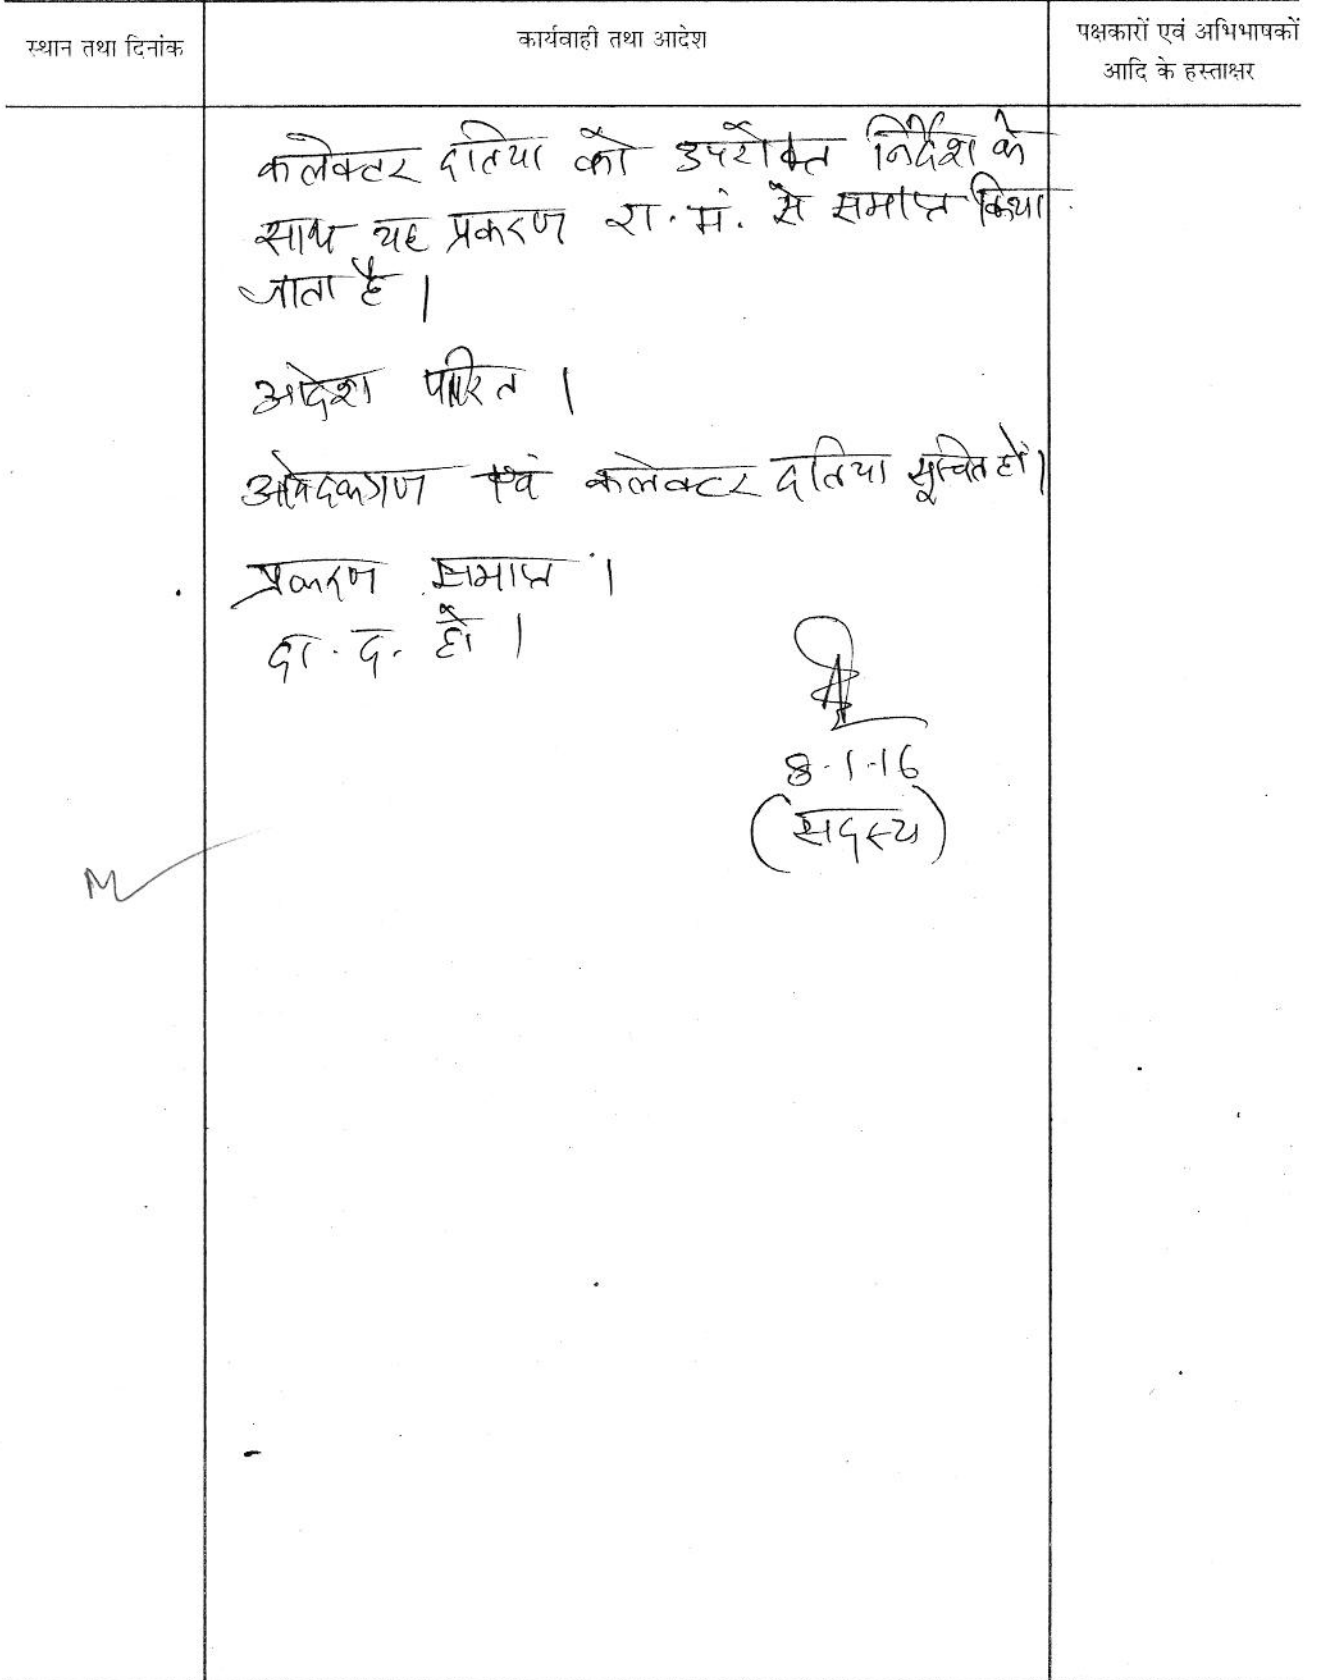 स्थान तथा दिनांक
कार्यवाही तथा आदेश
पक्षकारों एवं अभिभाषकों
आदि के हस्ताक्षर
कलेक्टर दतिया को उपरोक्त निर्देश के
साथ यह प्रकरण रा. मं. से समाप्त किया
जाता है ।
आदेश पारित ।
आवेदकगण एवं कलेक्टर दतिया सूचित हों ।
प्रकरण समाप्त ।
दा. द. हो ।
8-1-16
(सदस्य)